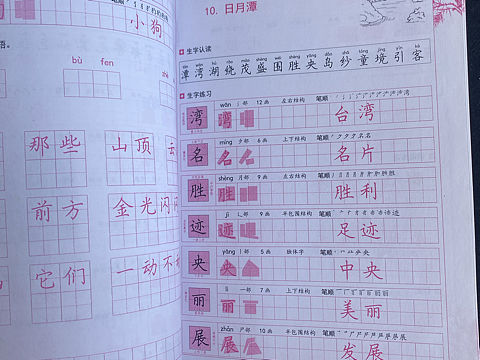 小狗
语。
bù fen
那些 山顶
前方 金光闪
它们 一动不
10. 日月潭
生字认读
潭湾湖绕茂盛围胜央岛纱童境引客
生字练习
湾 wān 氵部 12画 左右结构 笔顺
台湾
名 míng 夕部 6画 上下结构 笔顺
名片
胜 shèng 月部 9画 左右结构 笔顺
胜利
迹 jì 辶部 9画 半包围结构 笔顺
足迹
央 yāng 丨部 5画 独体字 笔顺
中央
丽 lì 一部 7画 上下结构 笔顺
美丽
展 zhǎn 尸部 10画 半包围结构 笔顺
发展